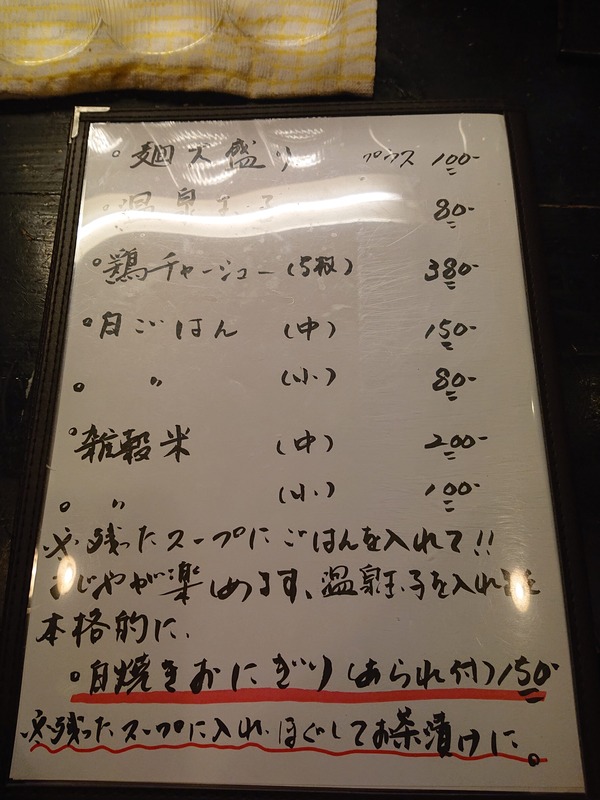 。麺大盛り プラス 100-
。温泉玉子 80-
。鶏チャーシュー (5枚) 380-
。白ごはん (中) 150-
。 〃 (小) 80-
。雑穀米 (中) 200-
。 〃 (小) 100-
※残ったスープにごはんを入れて!!
おじやが楽しめます、温泉玉子を入れると
本格的に、
。白焼きおにぎり(あられ付)150-
※残ったスープに入れ、ほぐしてお茶漬けに。